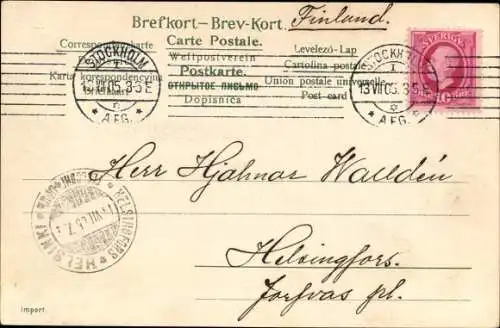 Brefkort–Brev-Kort. Finland.
Correspondenzkarte Carte Postale. Levelező-Lap
Weltpostverein Cartolina postale
Karta korespondencyjna Postkarte. Union postale universelle
ОТКРЫТОЕ ПИСЬМО Post card
Dopisnica
STOCKHOLM
1
13 VII 05. 3.5 E
6
* AFG. *
STOCKHOLM
1
13 VII 05. 3.5 E
6
* AFG. *
SVERIGE
10
Herr Hjalmar Walldén
Helsingfors.
HELSINGFORS * HELSINKI
import